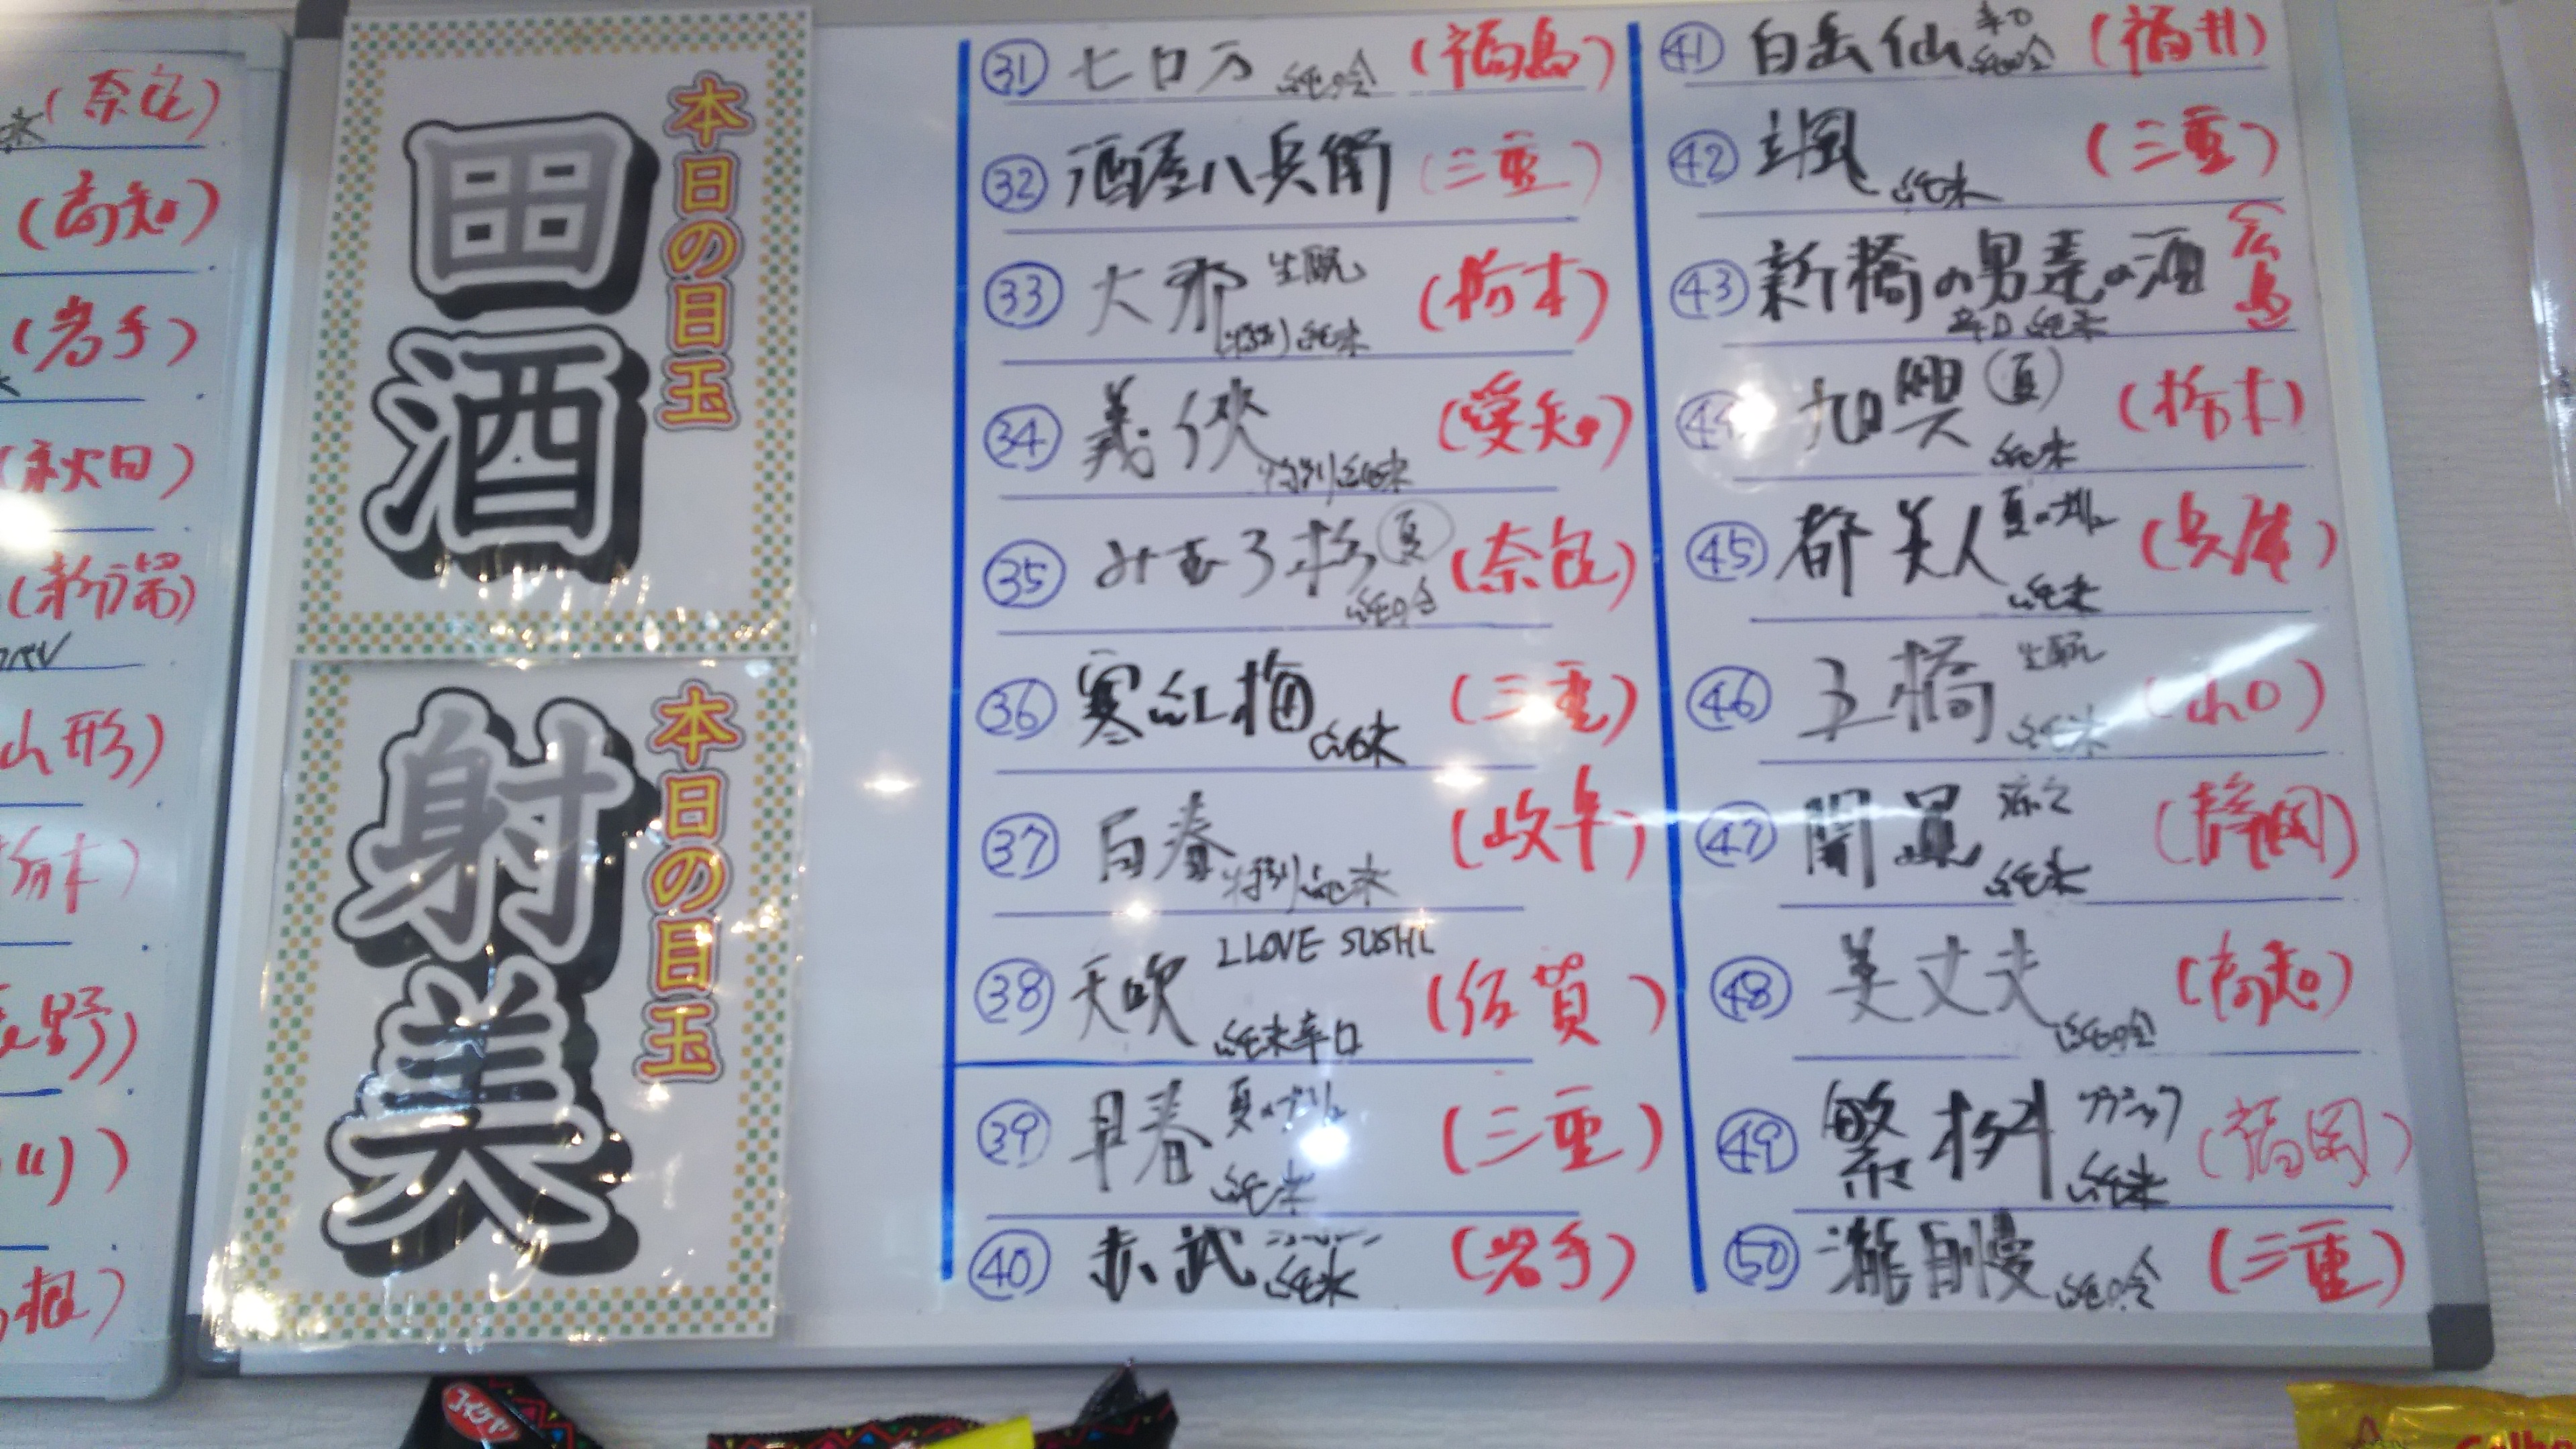 (奈良)
(高知)
(岩手)
(秋田)
(新潟)
山形)
栃木)
野)
川)
根)
本日の目玉
田酒
本日の目玉
射美
㉛ 七ロ万 純吟 (福島)
㉜ 酒屋八兵衛 (三重)
㉝ 大那 生酛 特別純米 (栃木)
㉞ 義侠 特別純米 (愛知)
㉟ みむろ杉 夏 純吟 (奈良)
㊱ 寒紅梅 純米 (三重)
㊲ 百春 特別純米 (岐阜)
㊳ 天吹 I LOVE SUSHI 純米辛口 (佐賀)
㊴ 早春 夏の 純米 (三重)
㊵ 赤武 純米 (岩手)
㊶ 白岳仙 辛口 純吟 (福井)
㊷ 颯 純米 (三重)
㊸ 新橋の男達の酒 辛口純米 (広島)
㊹ 旭興 夏 純米 (栃木)
㊺ 都美人 夏の 純米 (兵庫)
㊻ 五橋 生酛 純米 (山口)
㊼ 開運 純米 (静岡)
㊽ 美丈夫 純吟 (高知)
㊾ 繁桝 クラシック 純米 (福岡)
㊿ 瀧自慢 純吟 (三重)
コイケヤ